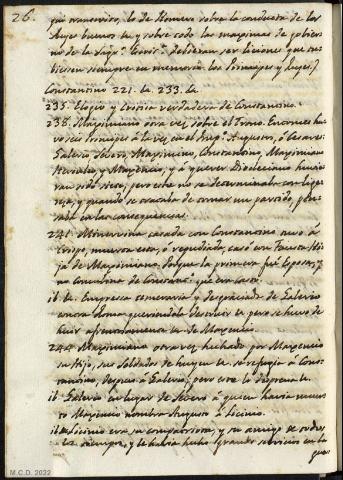 26.
qui transcrivo, lo de Homero sobre la conducta de los
Reyes buenos &c y sobre todo las maximas de gobier-
no de la Sagr. Escrit. debieran ser liciones que tu-
biesen siempre en memoria los Principes y Reyes.)
Constantino 221. la 233. la
235. Elogio y critica verdadera de Constantino.
238. Maximiano otra vez sobre el trono. Entonces hu-
vo seis Principes á la vez en el Imp. Augustos, ó Cesares
Galerio Severo, Maximino, Constantino, Maximiano
Herculeo, y Maxencio, y á querer Diocleciano hubie-
ran sido siete, pero este no se determinaba con lige-
reza, y quando se trataba de tomar un partido, pen-
saba en las consequencias.
241. Minervina casada con Constantino tuvo á
Crispo, muerta esta, ó repudiada, casó con Fausta Hi-
ja de Maximiano. Polque la primera fué esposa, y
no concubina de Constant. que era casto.
ib. la. Empresa temeraria y desgraciada de Galerio
contra Roma queriendola destruir &c pero se huvo de
huir afrentosamente &c de Maxencio
244. Maximiano otra vez hechado por Maxencio
su Hijo, sus Soldados de huyen &c se refugia á Cons-
tantino, despues á Galerio; pero este lo desprecia &c
ib. Galerio en lugar de Severo á quien havia muer-
to Maxencio nombra Augusto á Licinio.
ib. la Licinio era su compatriota, y su amigo de todos
los tiempos, y le havia hecho grandes servicios en la
gue-
M.C.D. 2022